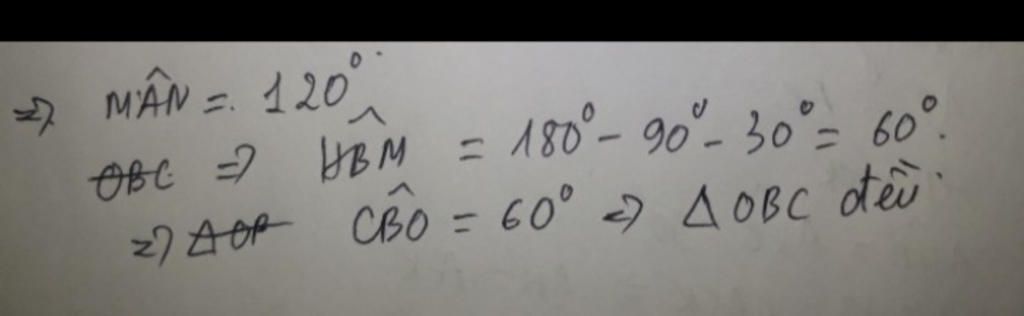 => MÂN = 120°.
OBC => HB̂M = 180° - 90° - 30° = 60°.
=> ΔOP CB̂O = 60° => Δ OBC đều.